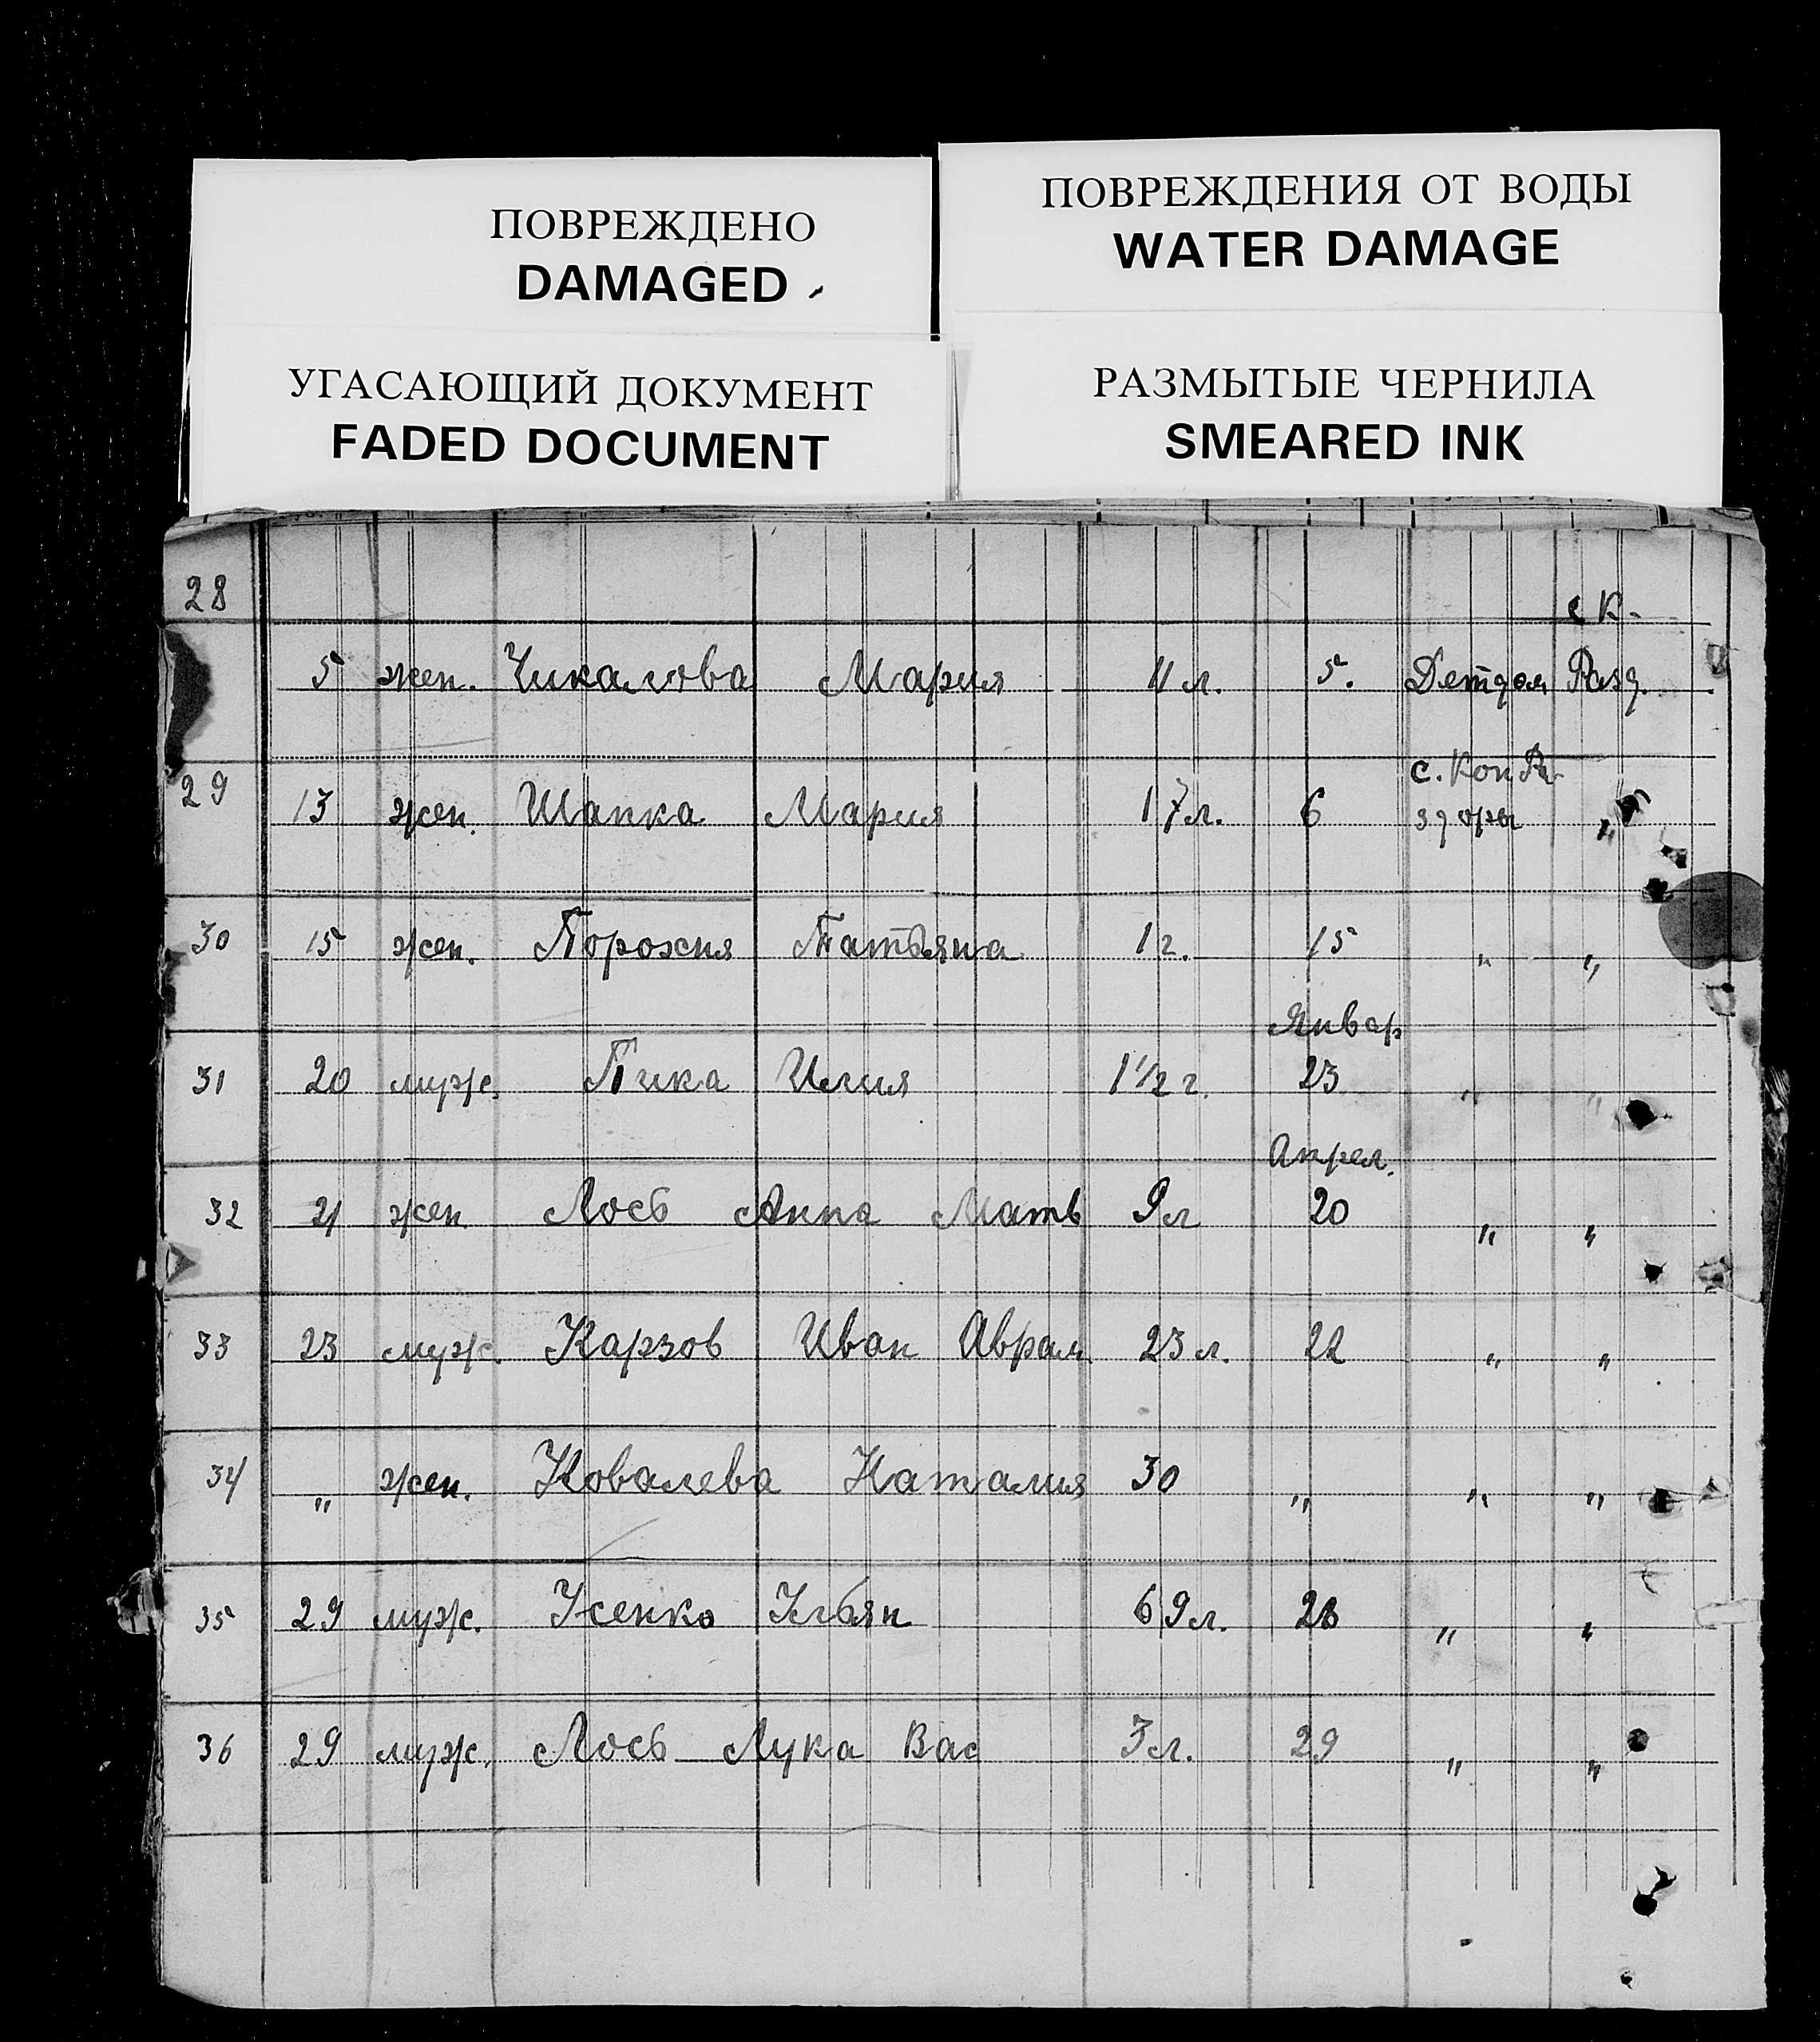 ПОВРЕЖДЕНО
DAMAGED
ПОВРЕЖДЕНИЯ ОТ ВОДЫ
WATER DAMAGE
УГАСАЮЩИЙ ДОКУМЕНТ
FADED DOCUMENT
РАЗМЫТЫЕ ЧЕРНИЛА
SMEARED INK
28
с К-
5 жен. Чикалова Мария 11 л. 5. Детдом Разд.
с. Кон Ра-
29 13 жен. Шапка Мария 17 л. 6 здоры "
30 15 жен. Порохня Татьяна 1 г. 15 " "
Январ
31 20 муж. Пика Илия 1 1/2 г. 23 " "
Апрел.
32 21 жен Лось Анна Матв 9 л 20 " "
33 23 муж. Карзов Иван Аврам. 23 л. 22 " "
34 " жен. Ковалева Наталия 30 " " "
35 29 муж. Усенко Ульян 69 л. 28 " "
36 29 муж. Лось Лука Вас 3 л. 29 " "